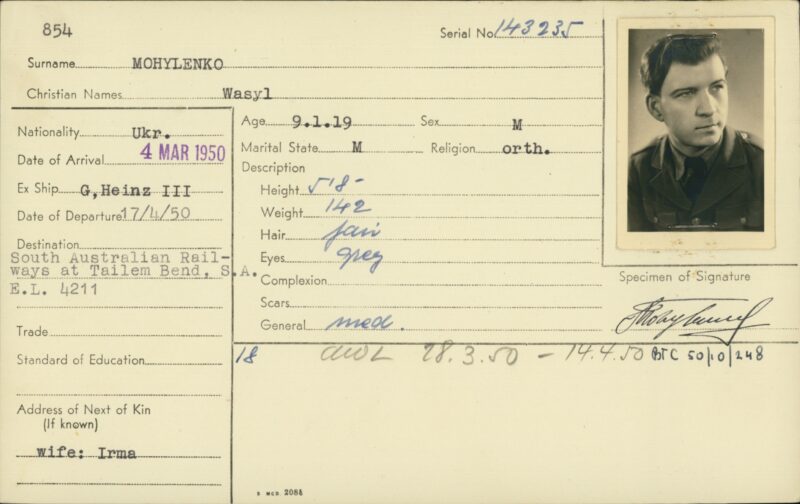 854
Serial No. 143235
Surname MOHYLENKO
Christian Names Wasyl
Nationality Ukr.
Date of Arrival 4 MAR 1950
Ex Ship G,Heinz III
Date of Departure 17/4/50
Destination
South Australian Rail-
ways at Tailem Bend, S.A.
E.L. 4211
Trade
Standard of Education
Address of Next of Kin
(If known)
wife: Irma
Age 9.1.19 Sex M
Marital State M Religion orth.
Description
Height 5'8-
Weight 142
Hair fair
Eyes grey
Complexion
Scars
General med.
Specimen of Signature
18 AWL 28.3.50 - 14.4.50 BTC 50/10/248
2088